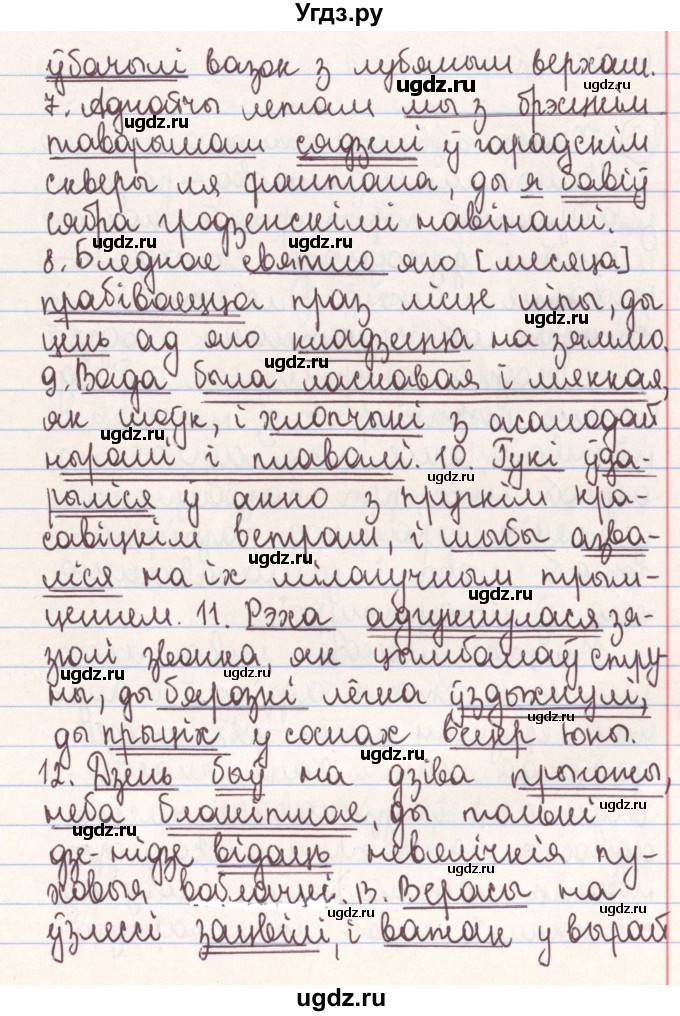 Угдз.ру
ўбачылі вазок з лубяным верхам.
7. Аднойчы летам мы з брэсцкім
таварышам сядзелі ў гарадскім
скверы ля фантана, ды я бавіў
сябра гродзенскімі навінамі.
8. Бледнае святло яго [месяца]
прабіваецца праз лісце ліпы, ды
цень ад яго кладзецца на зямлю.
9. Вада была ласкавая і мяккая,
як шоўк, і хлопчыкі з асалодай
ныралі і плавалі. 10. Гукі ўда-
рыліся ў акно з пругкім кра-
савіцкім ветрам, і шыбы азва-
ліся на іх мілагучным трым-
ценнем. 11. Рэха адгукнулася зя-
зюлі звонка, як цымбалаў стру-
ны, ды бярозкі лёгка ўздыхнулі,
ды прыціх у соснах вецер юны.
12. Дзень быў на дзіва прыгожы,
неба блакітнае, ды толькі
дзе-нідзе відаць невялічкія пу-
ховыя воблачкі. 13. Верасы на
ўзлессі зацвілі, і важак у вырай
ugdz.ru